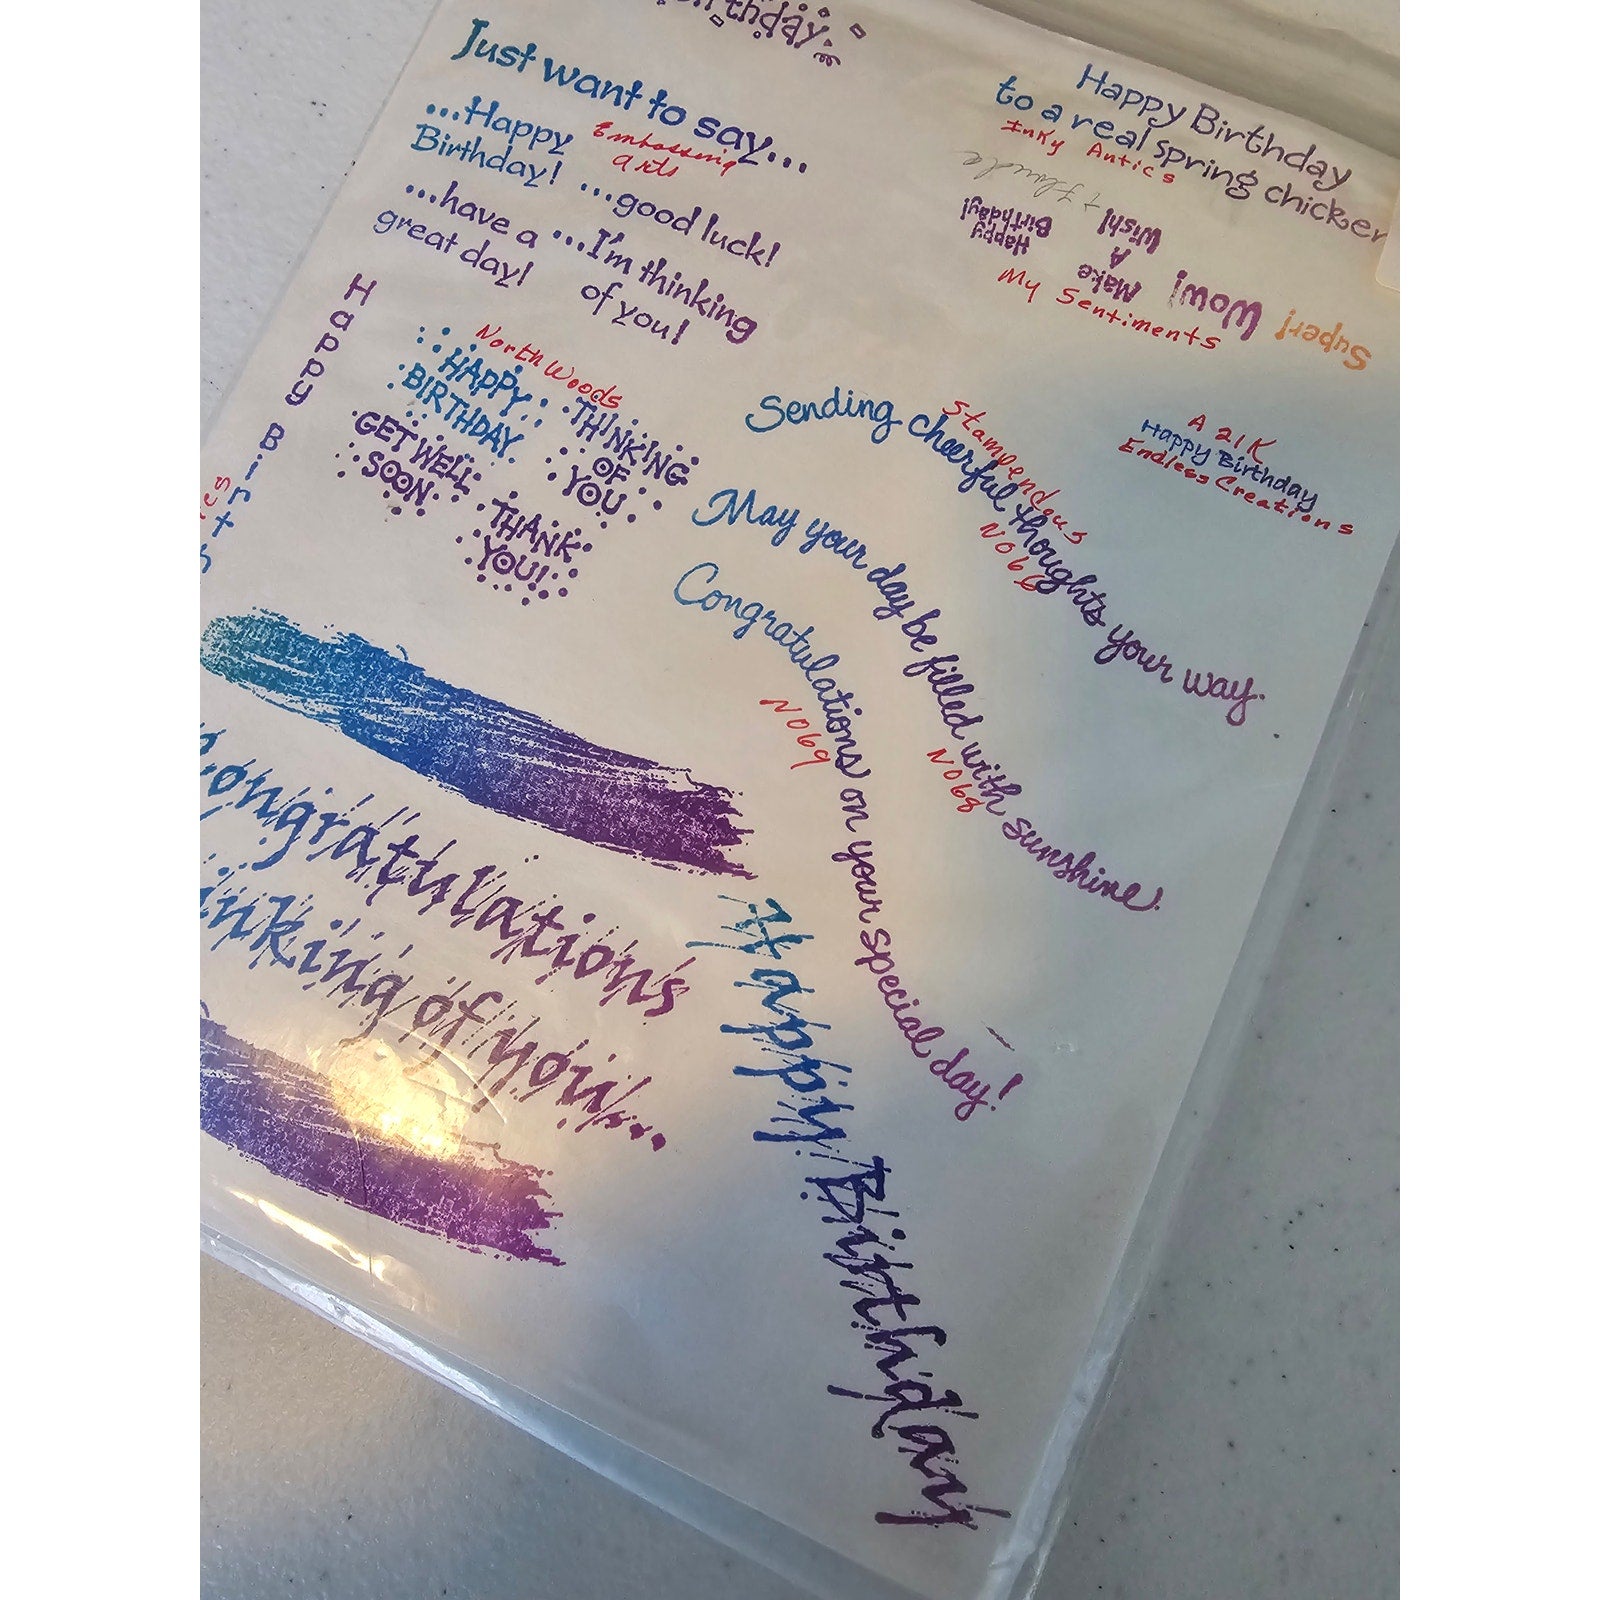 Just want to say...
...Happy
Birthday!
Embossing
arts
...good luck!
...have a
great day!
...I'm thinking
of you!
Happy Birthday
to a real spring chicken
Inky Antics
Happy
Birthday!
Make
A
Wish!
Wow!
Super!
My Sentiments
Happy Birt
North Woods
HAPPY
BIRTHDAY
THINKING
OF
YOU
GET WELL
SOON
THANK
YOU!
Sending cheerful thoughts your way.
Stampendous
May your day be filled with sunshine.
N068
Congratulations on your special day!
N069
A 21K
Happy Birthday
Endless Creations
Congratulations
inking of you...
Happy Birthday